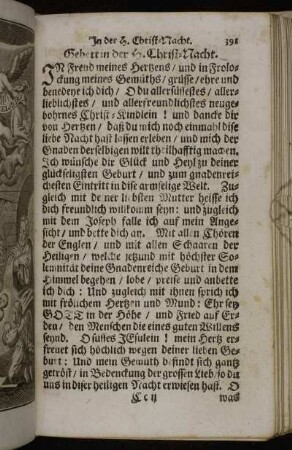 In der H. Christ-Nacht. 391
Gebett in der H. Christ-Nacht.
IN Freud meines Hertzens / und in Frolo-
ckung meines Gemüths / grüsse / ehre und
benedeye ich dich / O du allersüssestes / aller-
lieblichstes / und allerfreundlichstes neuge-
bohrnes Christ-Kindlein ! und dancke dir
von Hertzen / daß du mich noch einmahl dise
liebe Nacht hast lassen erleben / und mich der
Gnaden derselbigen wilt theilhafftig machen.
Ich wünsche dir Glück und Heyl zu deiner
glückseeligsten Geburt / und zum gnadenrei-
chesten Eintritt in dise armselige Welt. Zu-
gleich mit deiner liebsten Mutter heisse ich
dich freundlich willkomm seyn: und zugleich
mit dem Joseph falle ich auf mein Ange-
sicht / und bette dich an. Mit allen Chören
der Englen / und mit allen Schaaren der
Heiligen / welche jetzund mit höchster So-
lemnität deine Gnadenreiche Geburt in dem
Himmel begehen / lobe / preise und anbette
ich dich: Und zugleich mit ihnen sprich ich
mit frölichem Hertzen und Mund: Ehr sey
GOTT in der Höhe / und Fried auf Er-
den / den Menschen die eines guten Willens
seynd. O süsses JEsulein ! mein Hertz er-
freuet sich höchlich wegen deiner lieben Ge-
burt: Und mein Gemüth befindt sich gantz
getröst / in Bedenckung der grossen Lieb / so du
uns in diser heiligen Nacht erwiesen hast. O
Cc ij was